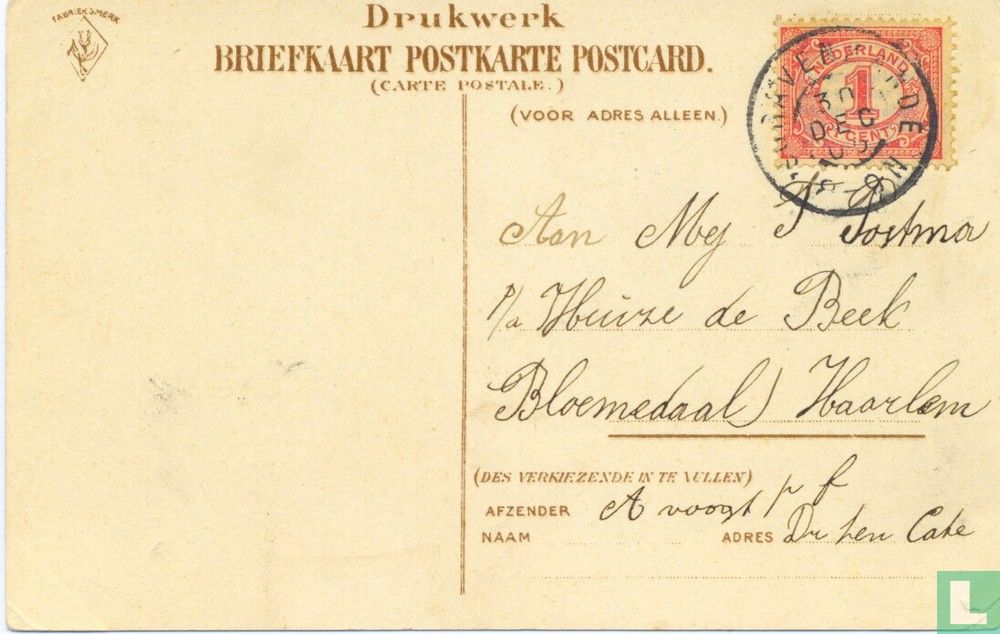 FABRIEKSMERK
Drukwerk
BRIEFKAART POSTKARTE POSTCARD.
(CARTE POSTALE.)
(VOOR ADRES ALLEEN.)
NEDERLAND
1
CENT
30
DEC
Aan Mej P Postma
p/a Huize de Beek
Bloemedaal) Haarlem
(DES VERKIEZENDE IN TE VULLEN)
AFZENDER A voogt p f
NAAM ADRES Dr ten Cate
L